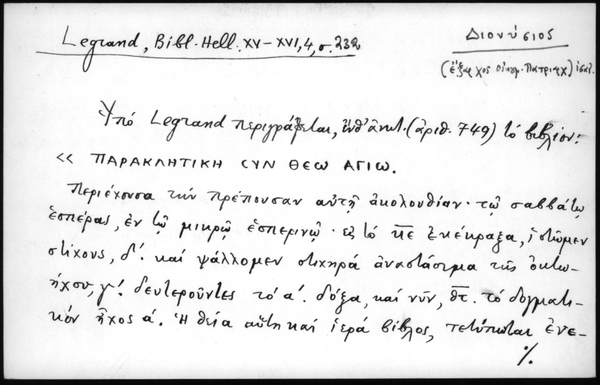 Legrand, Bibl. Hell. XV-XVI, 4, σ. 232
Διονύσιος
(ἔξαρχος Οἰκουμ. Πατριαρχ)
Ὑπὸ Legrand περιγράφεται, (ἀριθ. 749) τὸ βιβλίον:
<< ΠΑΡΑΚΛΗΤΙΚΗ CΥΝ ΘΕΩ ΑΓΙΩ.
Περιέχουσα τὴν πρέπουσαν αὐτῇ ἀκολουθίαν· τῷ σαββάτῳ
ἑσπέρας, ἐν τῷ μικρῷ ἑσπερινῷ· εἰς τὸ κε ἐκέκραξα, ἱστῶμεν
στίχους, δ'. καὶ ψάλλομεν στιχηρὰ ἀναστάσιμα τῆς ὀκτω-
ήχου, γ'. δευτεροῦντες τὸ α'. δόξα, καὶ νῦν, θτ. τὸ δογματι-
κὸν ἦχος α'. Ἡ θεία αὕτη καὶ ἱερὰ βίβλος, τετύπωται ἐνε-
%.